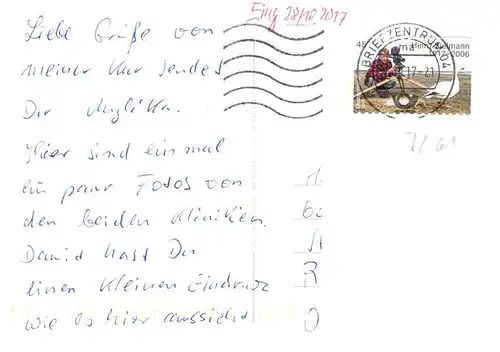 Eing 28/10.2017
Liebe Grüße von
meiner Kur sendet
Dir Angelika.
Hier sind einmal
ein paar Fotos von
den beiden Kliniken.
Damit hast Du
einen kleinen Eindruck
wie es hier aussieht
BRIEFZENTRUM 04
45
Heinz Sielmann
1917-2006